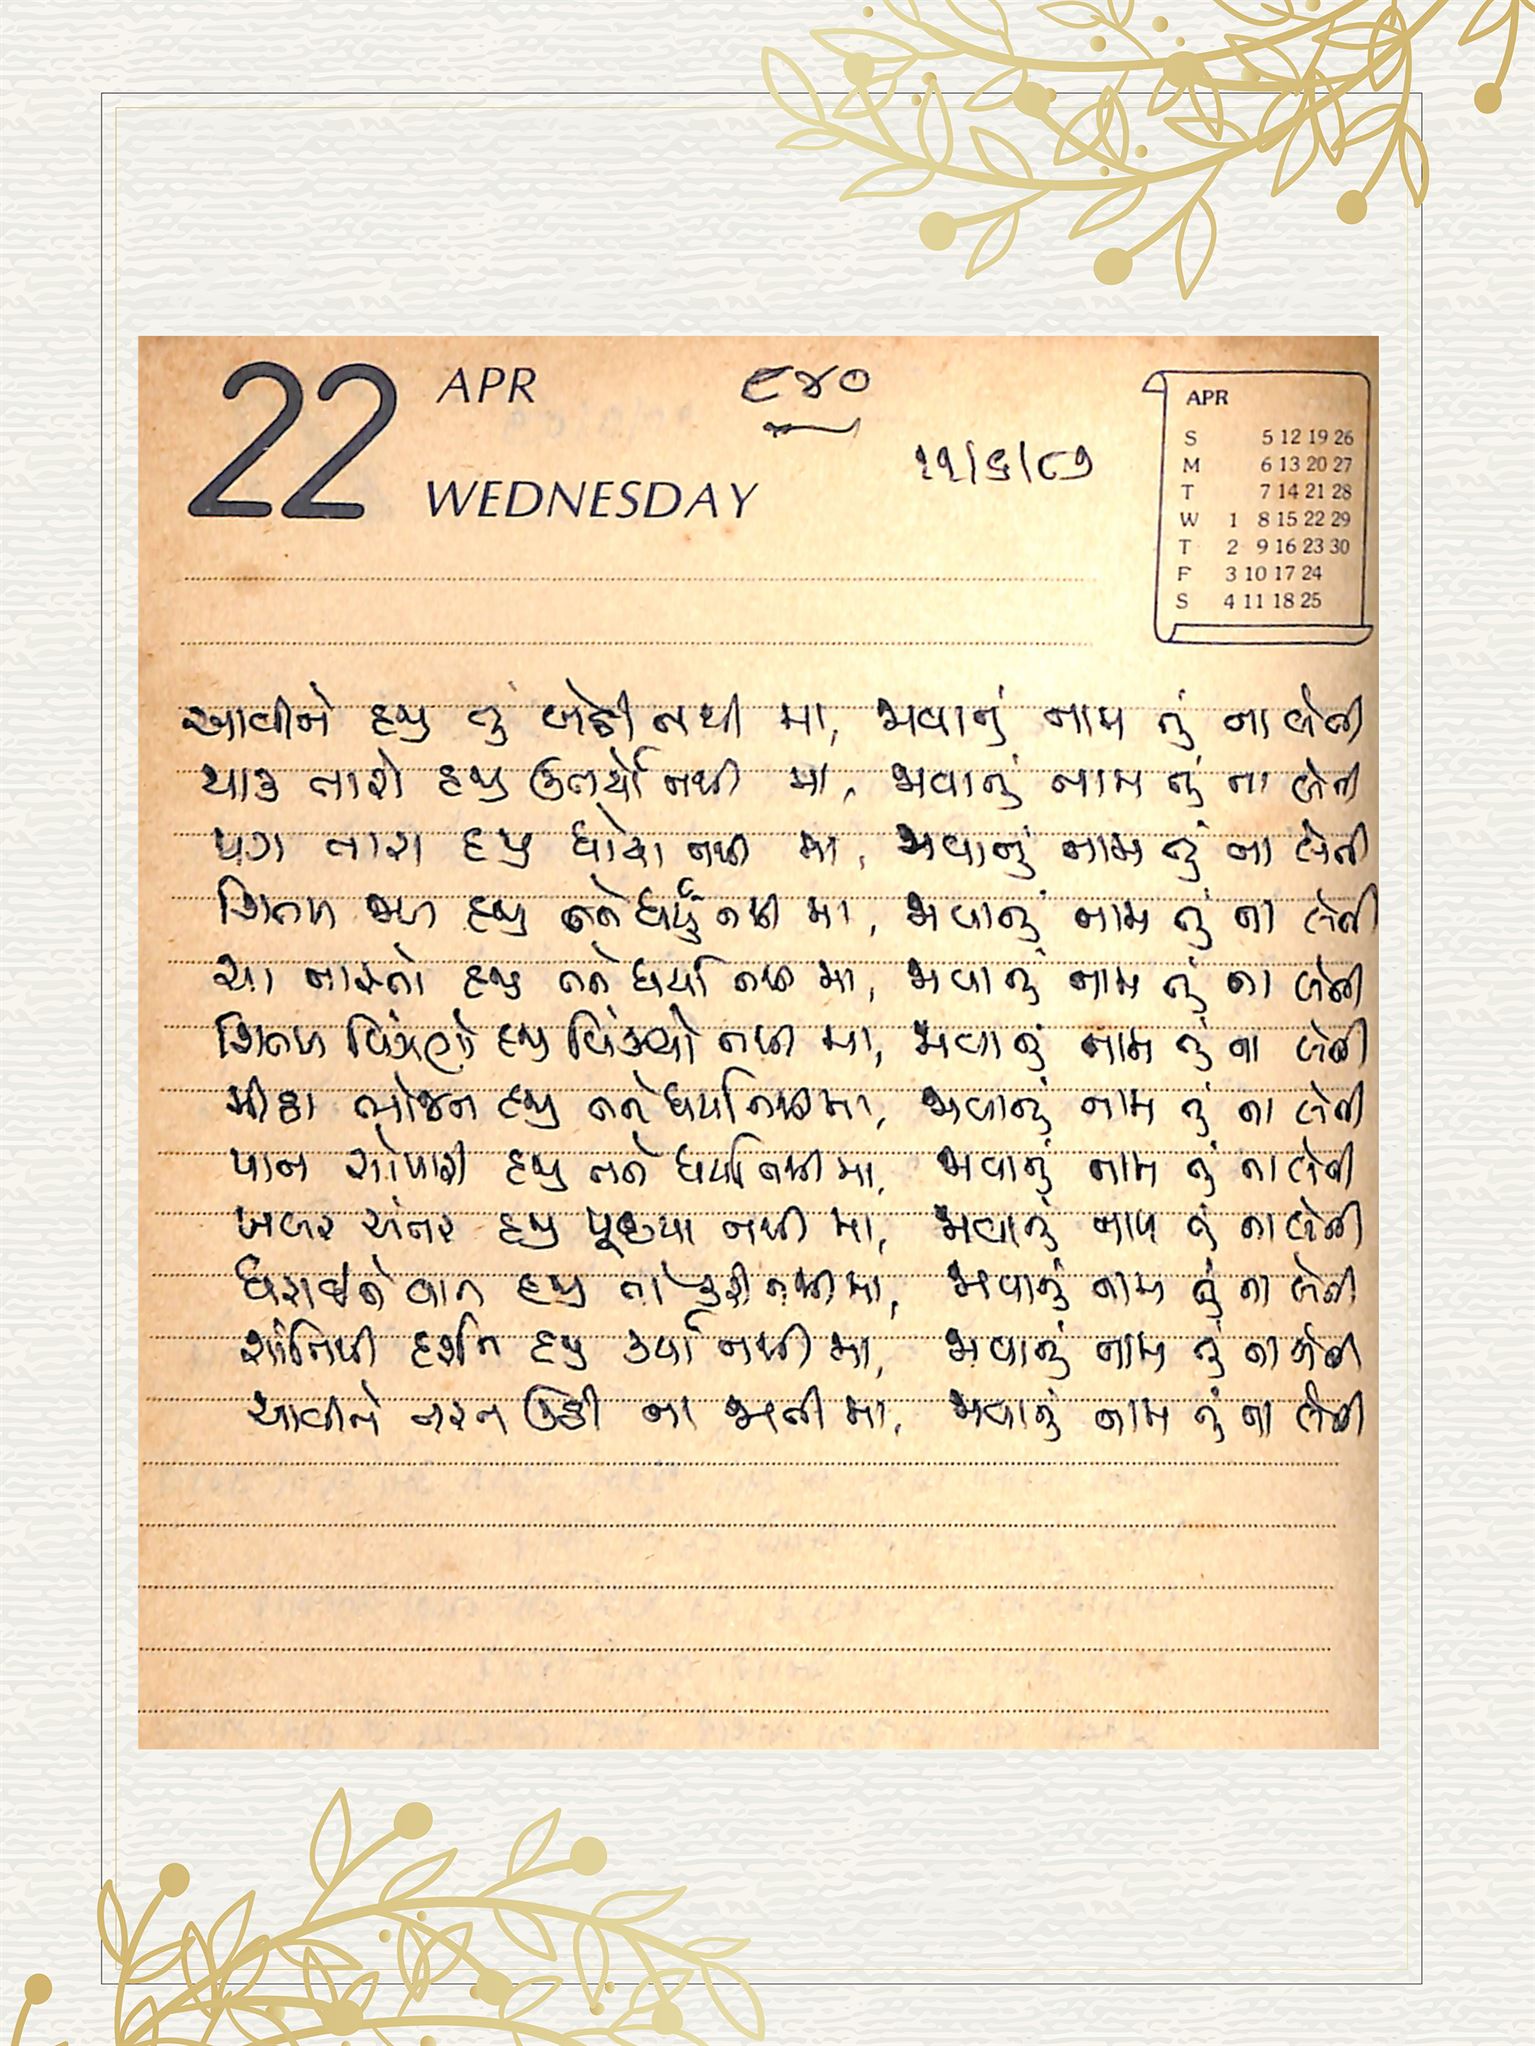 22 APR
૯૪૦
WEDNESDAY
૨૧/૬/૮૭
APR
S 5 12 19 26
M 6 13 20 27
T 7 14 21 28
W 1 8 15 22 29
T 2 9 16 23 30
F 3 10 17 24
S 4 11 18 25
આવીને હજુ તું બેઠી નથી મા, જવાનું નામ તું ના લેતી
થાક તારો હજુ ઉતર્યો નથી મા, જવાનું નામ તું ના લેતી
પગ તારા હજુ ધોયા નથી મા, જવાનું નામ તું ના લેતી
શિતળ જળ હજુ તને ધર્યું નથી મા, જવાનું નામ તું ના લેતી
ચા નાસ્તો હજુ તને ધર્યા નથી મા, જવાનું નામ તું ના લેતી
શિતળ વિંઝણો હજુ વિંઝ્યો નથી મા, જવાનું નામ તું ના લેતી
મીઠા ભોજન હજુ તને ધર્યા નથી મા, જવાનું નામ તું ના લેતી
પાન સોપારી હજુ તને ધર્યા નથી મા, જવાનું નામ તું ના લેતી
ખબર અંતર હજુ પૂછ્યા નથી મા, જવાનું નામ તું ના લેતી
ધરાઈને વાત હજુ તો કરી નથી મા, જવાનું નામ તું ના લેતી
શાંતિથી દર્શન હજુ કર્યા નથી મા, જવાનું નામ તું ના લેતી
આવીને તરત ઉઠી ના જાતી મા, જવાનું નામ તું ના લેતી